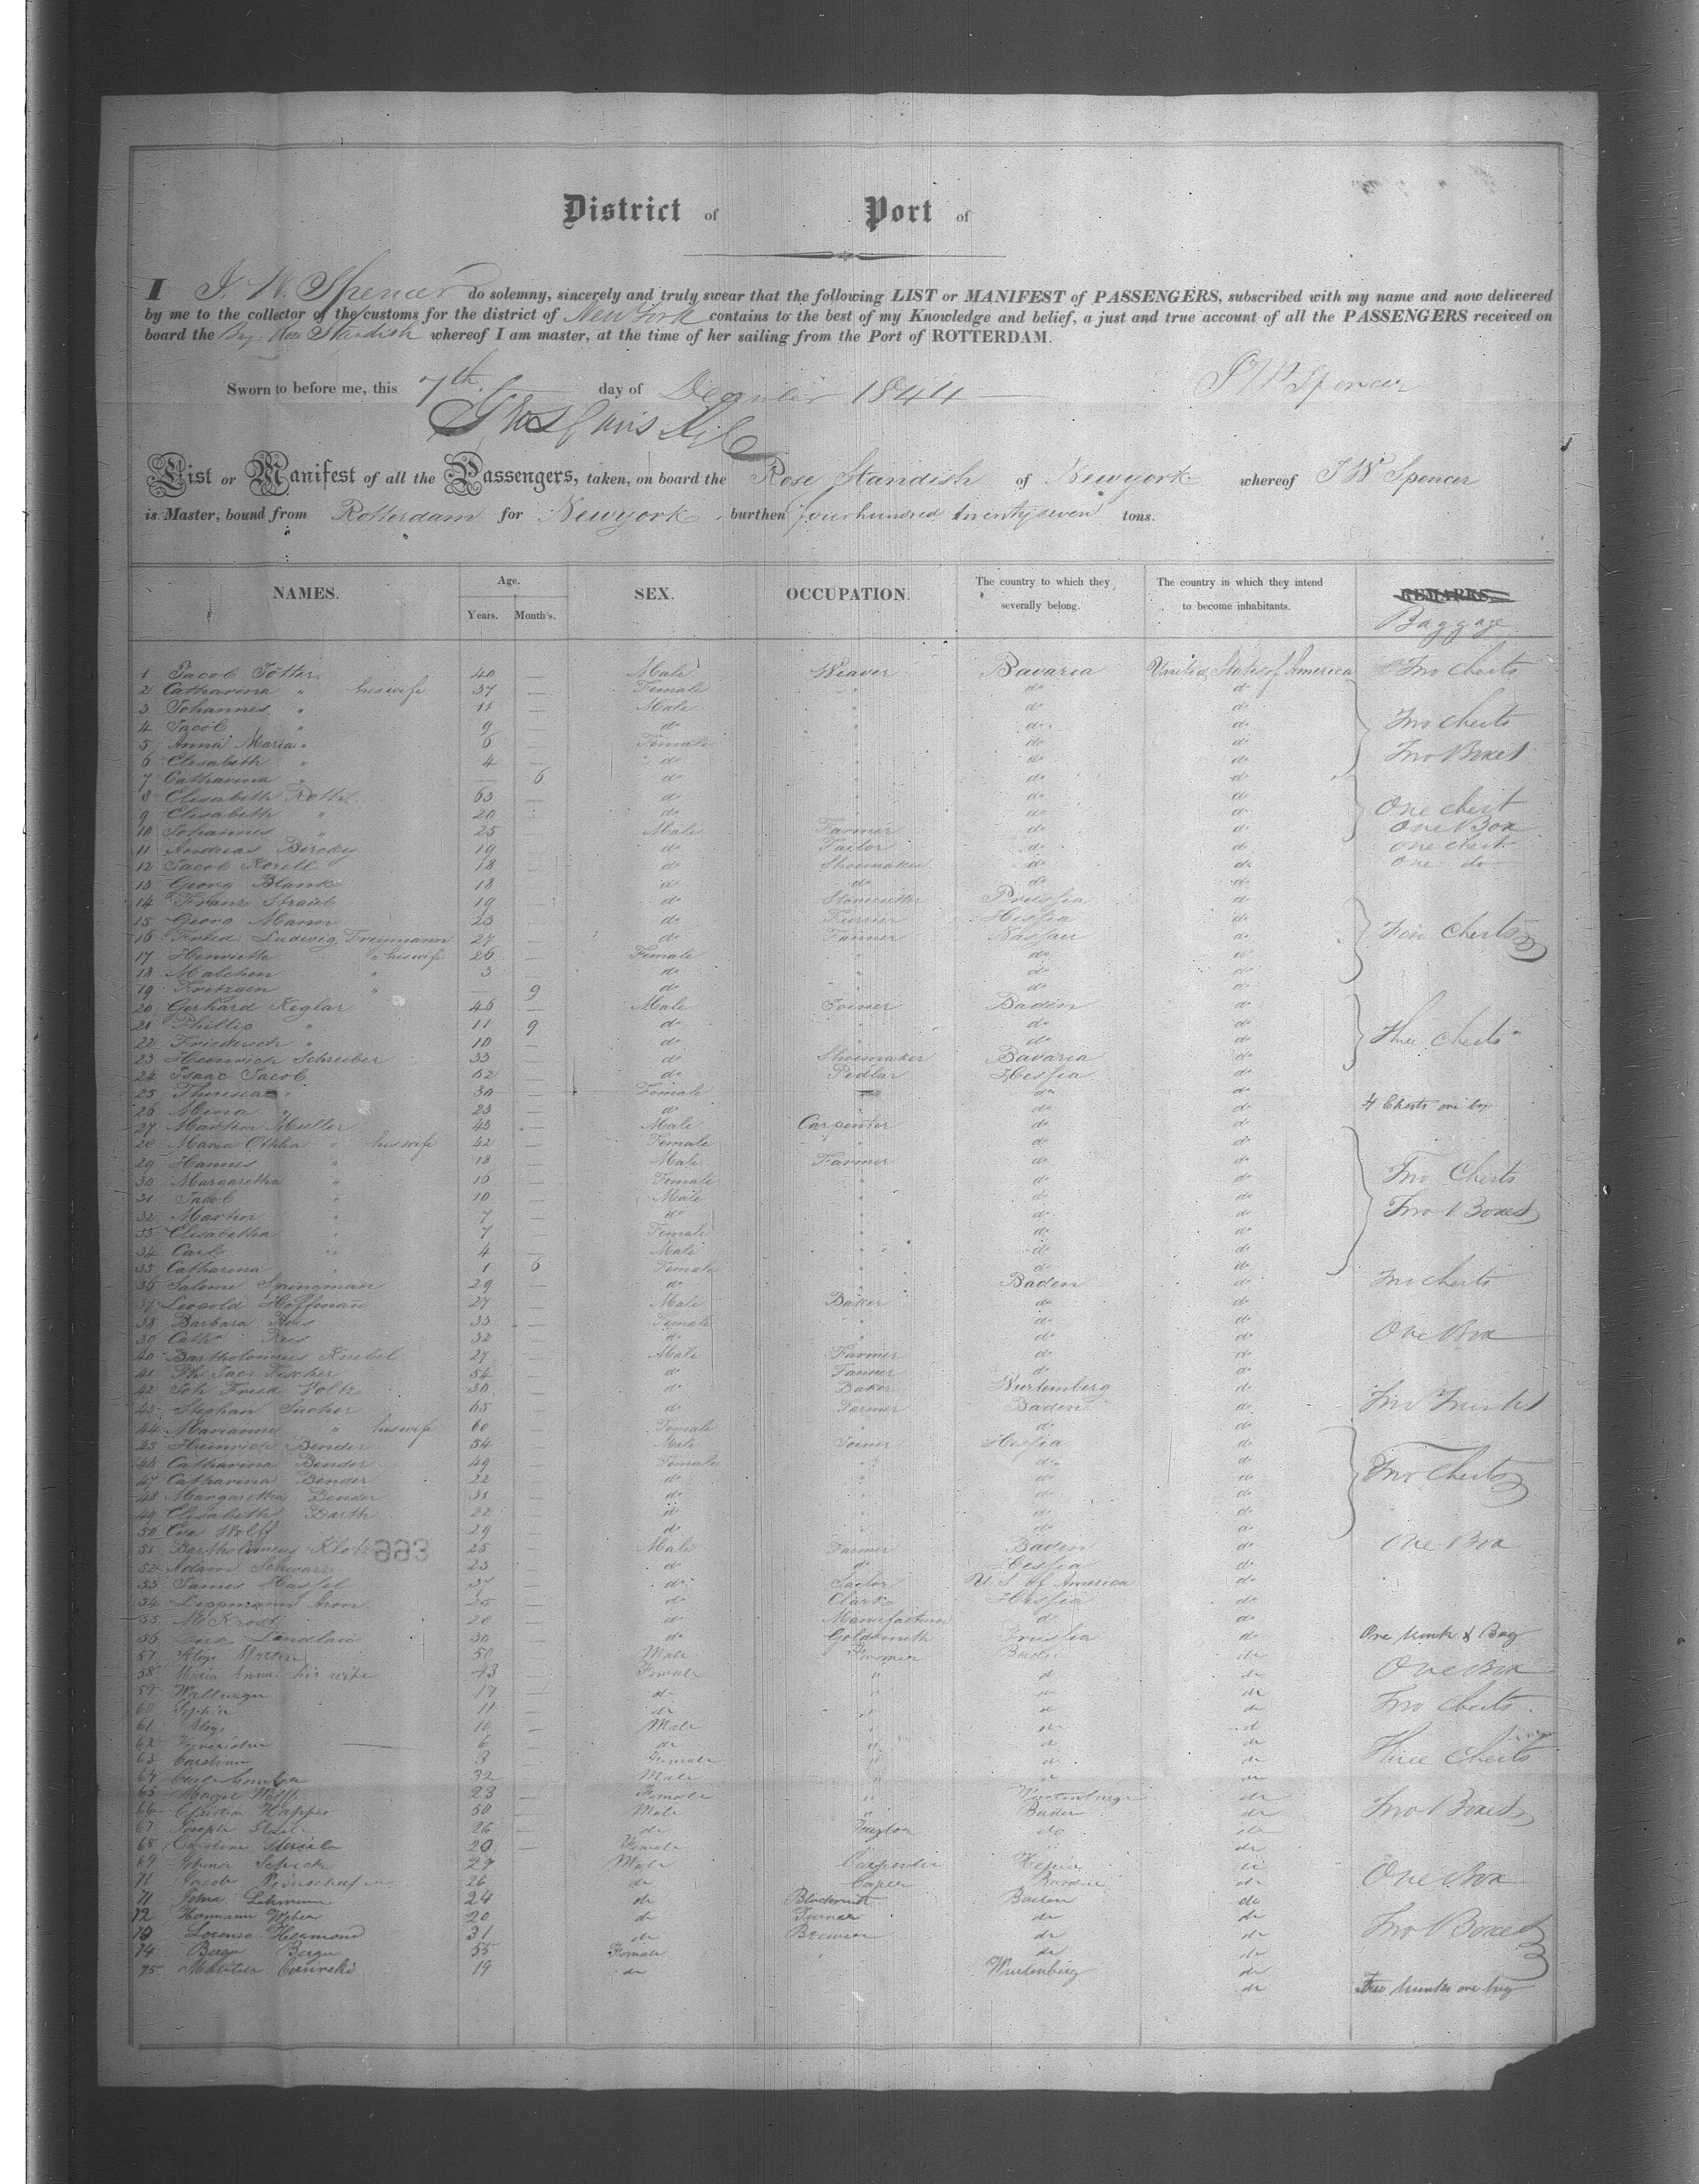 District of Port of
I J. W. Spencer do solemny, sincerely and truly swear that the following LIST or MANIFEST of PASSENGERS, subscribed with my name and now delivered
by me to the collector of the customs for the district of New York contains to the best of my Knowledge and belief, a just and true account of all the PASSENGERS received on
board the Rose Standish whereof I am master, at the time of her sailing from the Port of ROTTERDAM.
Sworn to before me, this 7th day of December 1844 J W Spencer
List or Manifest of all the Passengers, taken, on board the Rose Standish of Newyork whereof J W Spencer
is Master, bound from Rotterdam for Newyork, burthen four hundred twenty seven tons.
NAMES. Age. Years. Month's. SEX. OCCUPATION. The country to which they severally belong. The country in which they intend to become inhabitants. REMARKS. Baggage
1 Jacob 40 — Male Weaver Bavaria United States of America Two Chests
2 Catharina " his wife 37 — Female " do do
3 Johannes " 11 — Male " do do
4 Jacob " 9 — do " do do Two Chests
5 Anna Maria " 6 — Female " do do Two Boxes
6 Elisabeth " 4 — do " do do
7 Catharina " — 6 do " do do
8 Elisabeth 63 — do do do
9 Elisabeth " 20 — do do do One Chest
10 Johannes " 25 — Male Farmer do do One Box
11 Andreas 19 — do Tailor do do One Chest
12 Jacob 18 — do Shoemaker do do One do
13 Georg Blank 18 — do do do do
14 Franz Straub 19 — do Stonecutter Prussia do
15 Georg Mann 23 — do Hessia do
16 Fried Ludwig 27 — do Nassau do Chests
17 Henriette " his wife 26 — Female do do
18 Malchen " 3 — do do do
19 " — 9 do do do
20 Gerhard Keglar 46 — Male Joiner Baden do
21 Phillip " 11 9 do do do
22 Friederich " 10 — do do do Three Chests
23 Heinrich Schreiber 33 — do Shoemaker Bavaria do
24 Isaac Jacob 52 — do Pedlar Hessia do
25 Theresia " 30 — Female do do
26 Mena " 23 — do do do 4 Chests one box
27 Martin Müller 43 — Male Carpenter do do
28 Maria " his wife 42 — Female " do do
29 Hannes " 18 — Male Farmer do do
30 Margaretha " 16 — Female " do do Two Chests
31 Jacob " 10 — Male " do do
32 " 7 — do " do do Two Boxes
33 Elisabetha " 7 — Female " do do
34 Carl " 4 — Male " do do
35 Catharina " 1 6 Female " do do
36 Salome Springman 29 — do Baden do Two Chests
37 Leopold Hoffman 27 — Male Baker do do
38 Barbara 33 — Female " do do
39 Cath 32 — do " do do One Box
40 Bartholomeus Knebel 27 — Male Farmer do do
41 Ph Jac Fischer 54 — do do do
42 Joh Fried Voltz 30 — do Baker Wurtemberg do Two Trunks
43 Stephan 65 — do Farmer Baden do
44 Marianne " his wife 60 — Female do do
45 Heinrich Bender 54 — Male Joiner Hessia do
46 Catharina Bender 49 — Female do do Two Chests
47 Catharina Bender 22 — do do do
48 Margaretha Bender 31 — do do do
49 Elisabeth Barth 22 — do do do
50 Eva Wolff 29 — do do do One Box
51 Bartholomeus Klotz 25 — Male Farmer Baden do
52 Adam Schwarz 23 — do do Hessia do
53 James Hassel 37 — do Sailor U. S. of America do
54 Lippmann Aron 25 — do Clark Hessia do
55 M Krost 28 — do do do
56 30 — do Goldsmith Prussia do One trunk & Bag
57 Aloys Martin 50 Male Farmer Baden do One Box
58 Maria Anna his wife 43 — Female " do do
59 17 — do " do do Two Chests
60 Sophia 11 — do " do do
61 Aloys 10 — Male " do do
62 6 — do " do do
63 Carolina 3 — Female " do do Three Chests
64 32 — Male " do do
65 Wolff 23 — Female " do
66 Christian 50 — Male " Baden do Two Boxes
67 Joseph 26 — do do do
68 Caroline 20 — Female do
69 29 Male Carpenter Hessia do
71 Jacob 26 do Cooper Bavaria do One Box
71 John Lehmann 24 do Blacksmith Baden do
72 Hermann Weber 20 do do do
73 Lorenz 31 do Brewer do do Two Boxes
74 55 Female do do
75 19 do Wurtemberg do
do trunks one bag